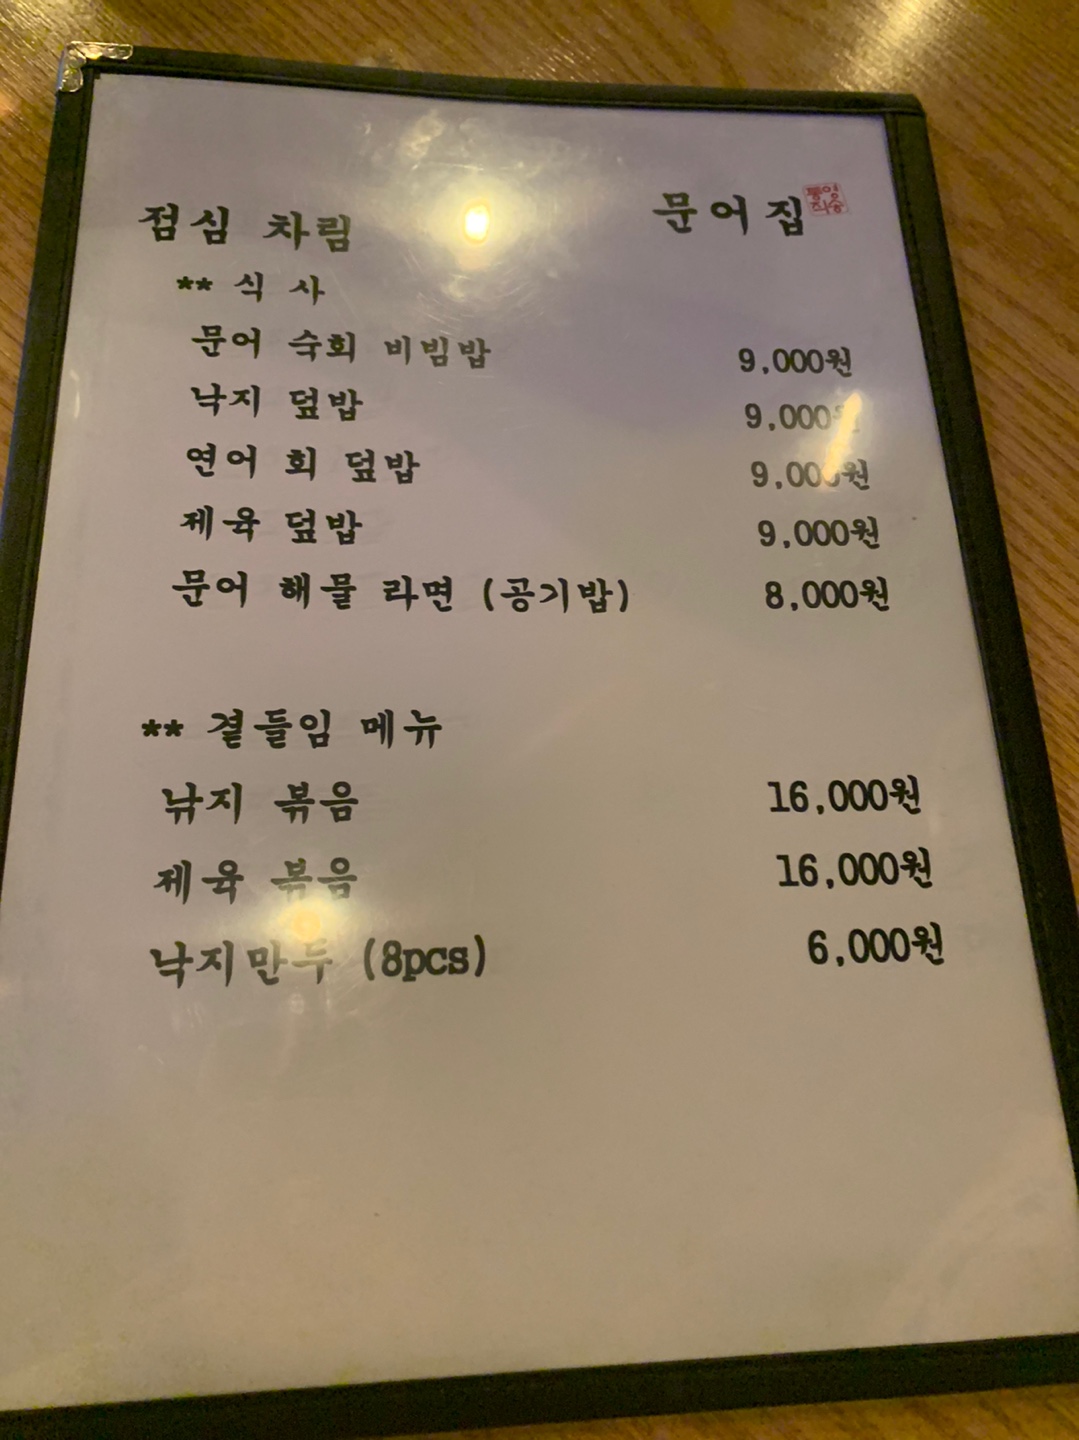 점심 차림
문어집
통영
직송
** 식 사
문어 숙회 비빔밥 9,000원
낙지 덮밥 9,000원
연어 회 덮밥 9,000원
제육 덮밥 9,000원
문어 해물 라면 (공기밥) 8,000원
** 곁들임 메뉴
낚지 볶음 16,000원
제육 볶음 16,000원
낙지만두 (8pcs) 6,000원